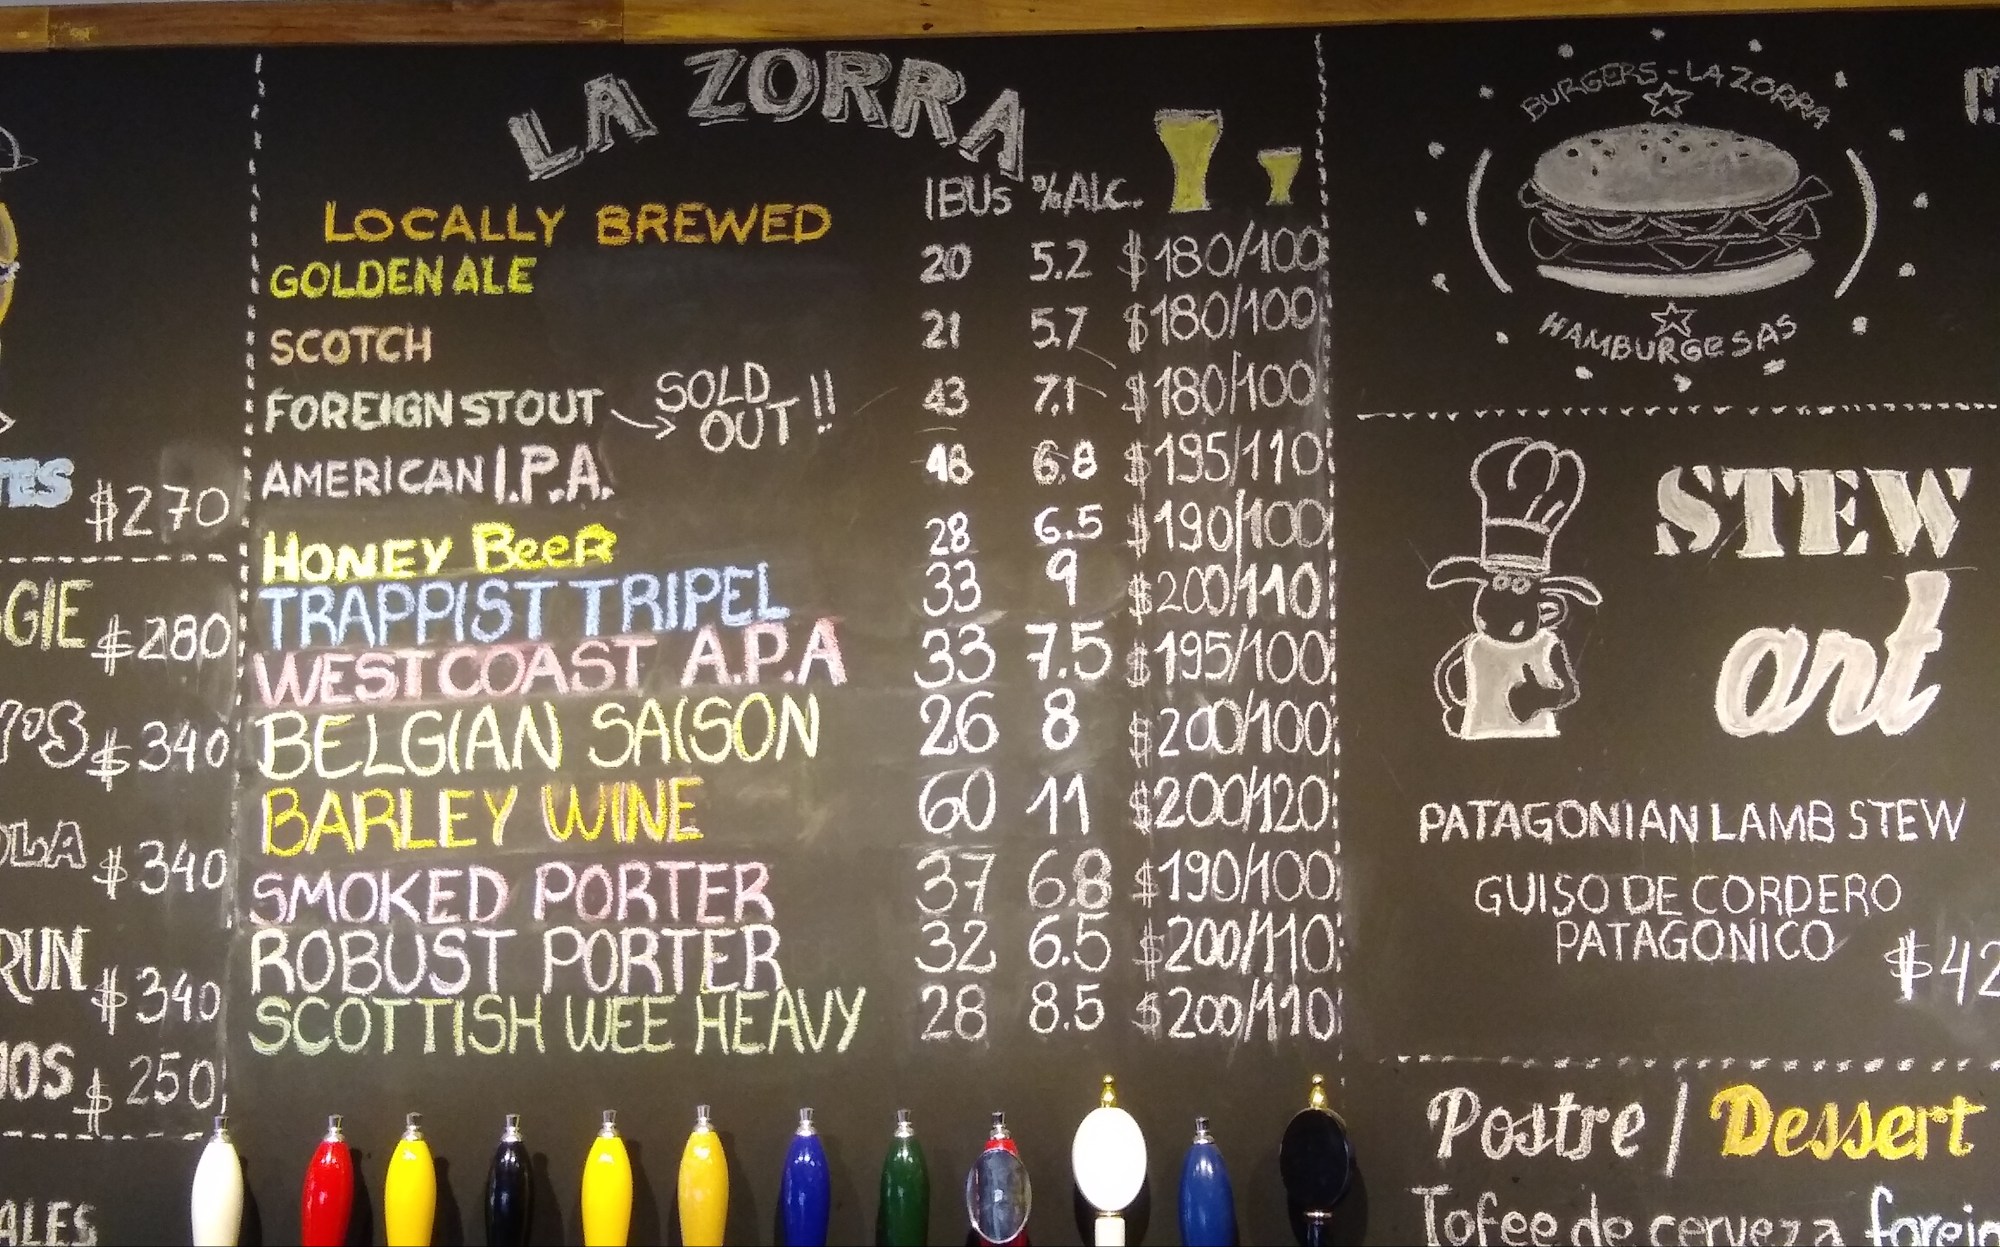 $270
$280
$340
$340
$340
$250
LA ZORRA
IBUs %ALC.
LOCALLY BREWED
GOLDEN ALE 20 5.2 $180/100
SCOTCH 21 5.7 $180/100
FOREIGN STOUT SOLD OUT!! 43 7.1 $180/100
AMERICAN I.P.A. 48 6.8 $195/110
HONEY BeeR 28 6.5 $190/100
TRAPPIST TRIPEL 33 9 $200/110
WEST COAST A.P.A 33 7.5 $195/100
BELGIAN SAISON 26 8 $200/100
BARLEY WINE 60 11 $200/120
SMOKED PORTER 37 6.8 $190/100
ROBUST PORTER 32 6.5 $200/110
SCOTTISH WEE HEAVY 28 8.5 $200/110
BURGERS - LA ZORRA
HAMBURGESAS
STEW
art
PATAGONIAN LAMB STEW
GUISO DE CORDERO
PATAGONICO
$42
Postre / Dessert
Tofee de cerveza